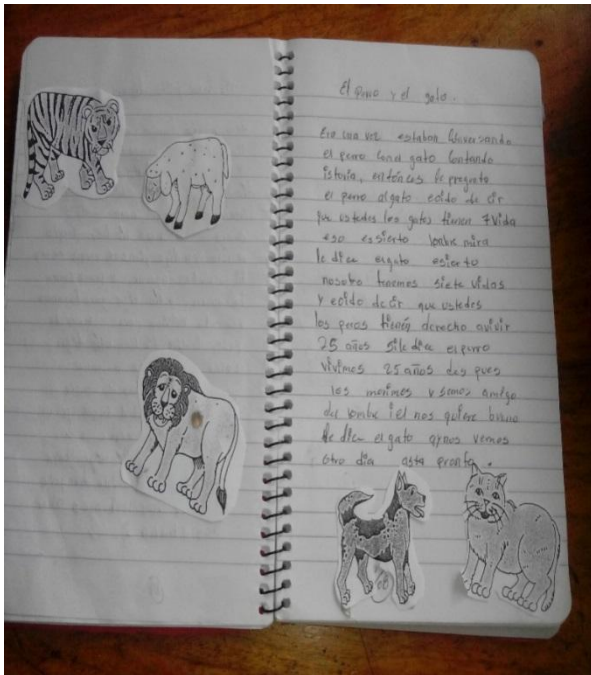 El perro y el gato.
Era una vez estaban conversando
el perro con el gato contando
istoria, entonces le pregunta
el perro algato eoido de cir
que ustedes los gatos tienen 7 vida
eso essierto mira
le dice elgato esierto
nosotro tenemos siete vidas
y eoido decir que ustedes
los peros tienen derecho avivir
25 años sile dice elperro
vivimos 25 años des pues
los morimos y somos amigo
del iel nos quiere bueno
le dice el gato nos vemos
otro dia asta pronto.